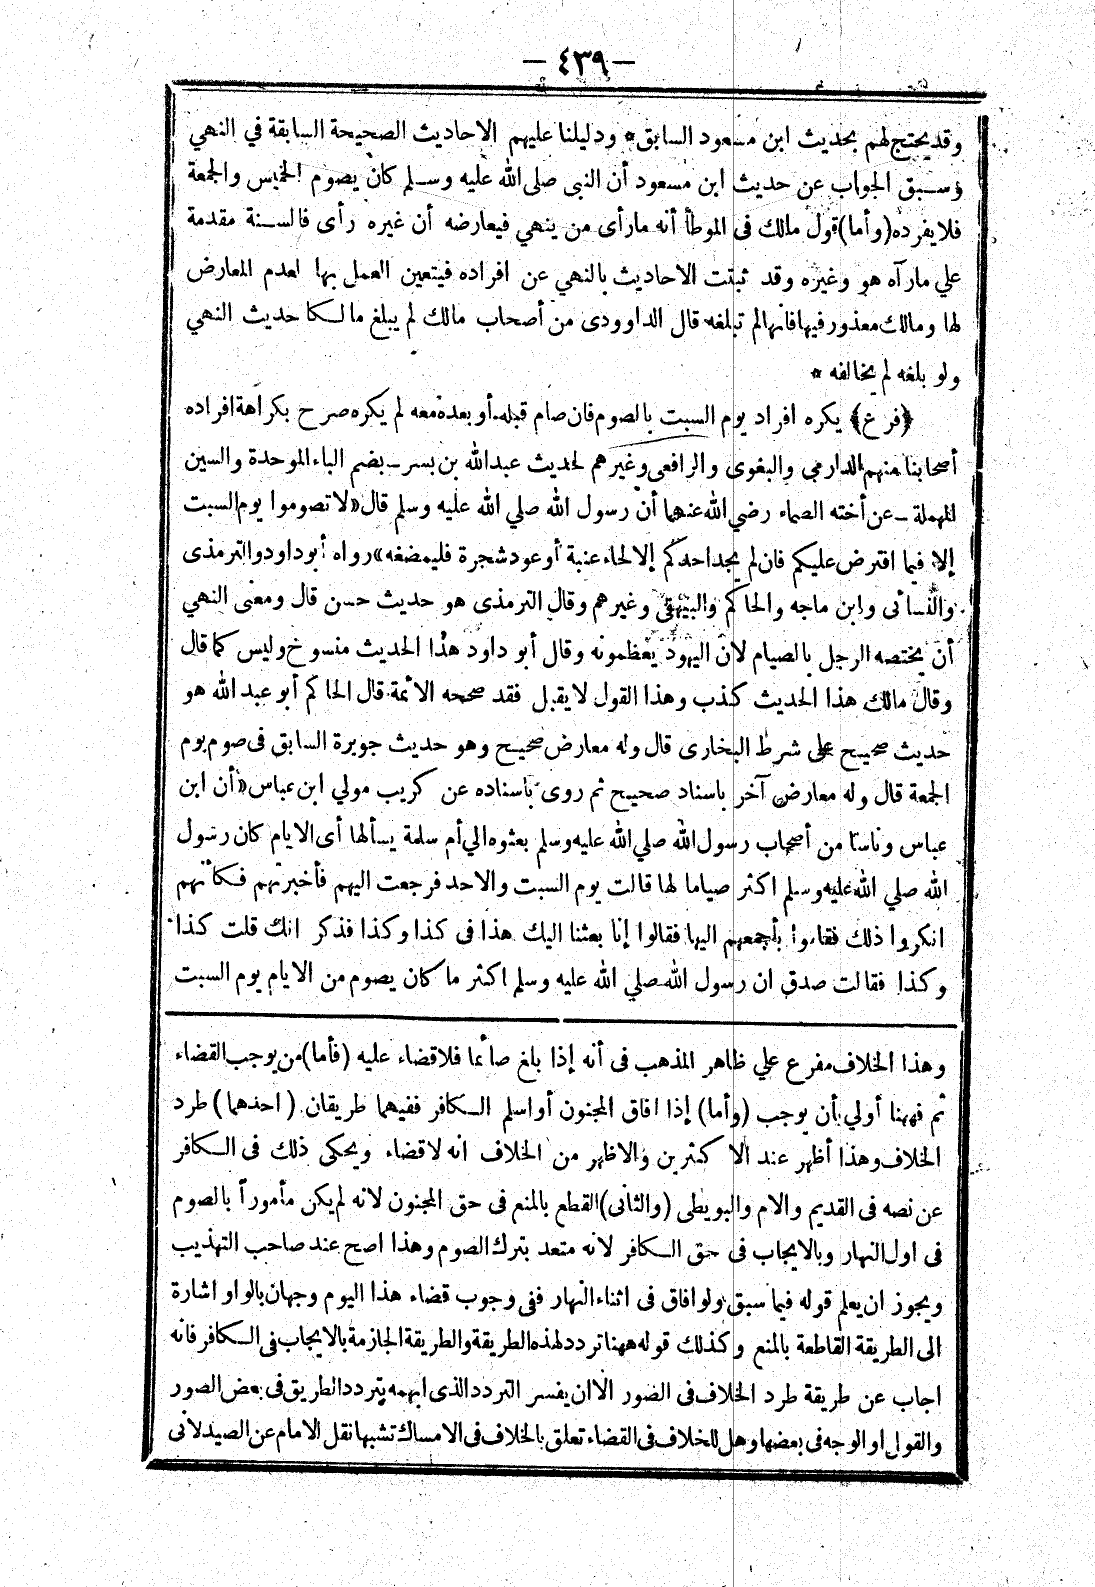 — ٤٣٩ —
وقد يحتج لهم بحديث ابن مسعود السابق * ودليلنا عليهم الاحاديث الصحيحة السابقة في النهي
وسبق الجواب عن حديث ابن مسعود أن النبى صلى الله عليه وسلم كان يصوم الخميس والجمعة
فلا يفرده (وأما) قول مالك فى الموطأ أنه مارأى من ينهي فيعارضه أن غيره رأى فالسنة مقدمة
علي مارآه هو وغيره وقد ثبتت الاحاديث بالنهي عن افراده فيتعين العمل بها لعدم المعارض
لها ومالك معذور فيها فانها لم تبلغه قال الداوودى من أصحاب مالك لم يبلغ مالكا حديث النهي
ولو بلغه لم يخالفه *
﴿فرع﴾ يكره افراد يوم السبت بالصوم فان صام قبله أو بعده معه لم يكره صرح بكراهة افراده
أصحابنا منهم الدارمي والبغوى والرافعى وغيرهم لحديث عبدالله بن بسر ـ بضم الباء الموحدة والسين
المهملة ـ عن أخته الصماء رضي الله عنهما أن رسول الله صلي الله عليه وسلم قال «لا تصوموا يوم السبت
إلا فيما افترض عليكم فان لم يجد احدكم إلا لحاء عنبة أو عود شجرة فليمضغه» رواه أبو داود والترمذى
والنسائى وابن ماجه والحاكم والبيهقى وغيرهم وقال الترمذى هو حديث حسن قال ومعنى النهي
أن يختصه الرجل بالصيام لان اليهود يعظمونه وقال أبو داود هذا الحديث منسوخ وليس كما قال
وقال مالك هذا الحديث كذب وهذا القول لا يقبل فقد صححه الائمة قال الحاكم أبو عبد الله هو
حديث صحيح على شرط البخارى قال وله معارض صحيح وهو حديث جويرة السابق فى صوم يوم
الجمعة قال وله معارض آخر باسناد صحيح ثم روى باسناده عن كريب مولي ابن عباس «أن ابن
عباس وناسا من أصحاب رسول الله صلي الله عليه وسلم بعثوه الي أم سلمة يسألها أى الايام كان رسول
الله صلي الله عليه وسلم اكثر صياما لها قالت يوم السبت والاحد فرجعت اليهم فأخبرتهم فكأنهم
انكروا ذلك فقاموا بأجمعهم اليها فقالوا إنا بعثنا اليك هذا فى كذا وكذا فذكر انك قلت كذا
وكذا فقالت صدق ان رسول الله صلي الله عليه وسلم اكثر ما كان يصوم من الايام يوم السبت
وهذا الخلاف مفرع علي ظاهر المذهب فى أنه إذا بلغ صائما فلا قضاء عليه (فأما) من يوجب القضاء
ثم فههنا أولي بأن يوجب (وأما) إذا افاق المجنون أو اسلم الكافر ففيهما طريقان (احدهما) طرد
الخلاف وهذا أظهر عند الاكثرين والاظهر من الخلاف انه لا قضاء ويحكى ذلك فى الكافر
عن نصه فى القديم والام والبويطى (والثانى) القطع بالمنع فى حق المجنون لانه لم يكن مأموراً بالصوم
فى اول النهار وبالايجاب فى حق الكافر لانه متعد بترك الصوم وهذا اصح عند صاحب التهذيب
ويجوز ان يعلم قوله فيما سبق ولو افاق فى اثناء النهار ففى وجوب قضاء هذا اليوم وجهان بالواو اشارة
الى الطريقة القاطعة بالمنع وكذلك قوله ههنا تردد لهذه الطريقة والطريقة الجازمة بالايجاب فى الكافر فانه
اجاب عن طريقة طرد الخلاف فى الصور الا ان يفسر التردد الذى ابهمه بتردد الطريق فى بعض الصور
والقول او الوجه فى بعضها وهل للخلاف فى القضاء تعلق بالخلاف فى الامساك تشبها نقل الامام عن الصيدلانى